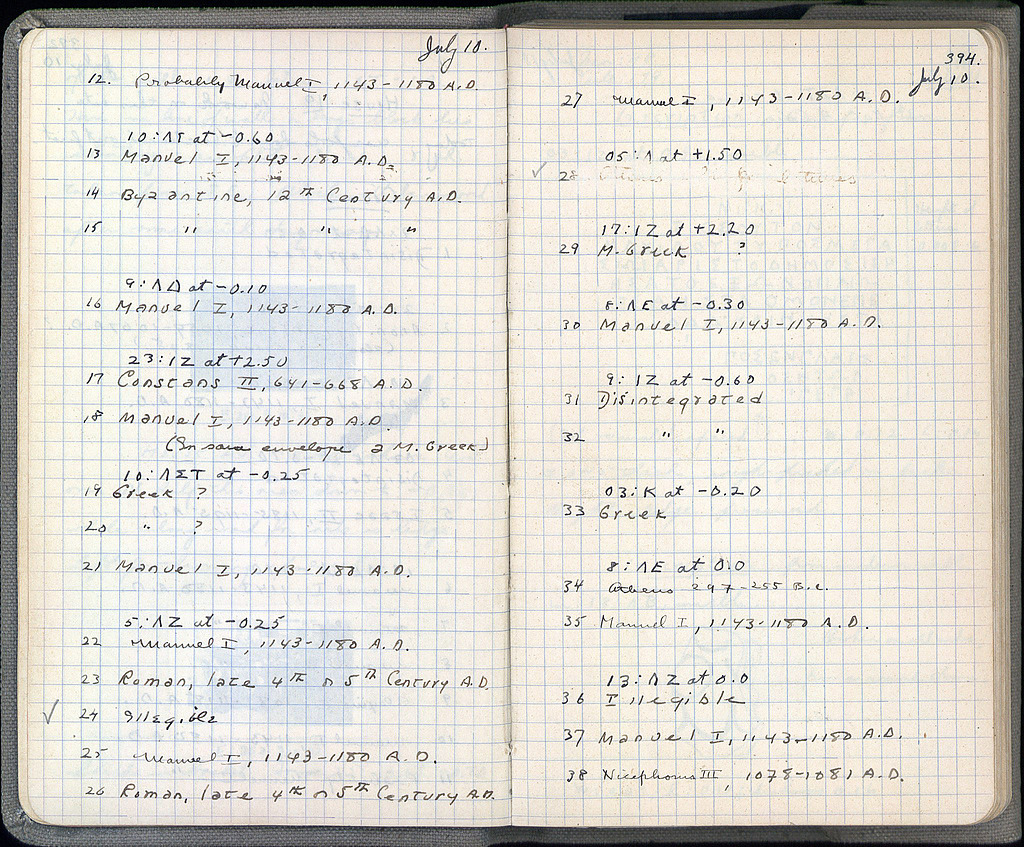 July 10.
12. Probably Manuel I, 1143-1180 A.D.
10:ΛΓ at -0.60
13 Manuel I, 1143-1180 A.D.
14 Byzantine, 12th Century A.D.
15 " " "
9:ΛΔ at -0.10
16 Manuel I, 1143-1180 A.D.
23:ΙΖ at +2.50
17 Constans II, 641-668 A.D.
18 Manuel I, 1143-1180 A.D.
(In same envelope a M. Greek)
10:ΛΣΤ at -0.25
19 Greek ?
20 " ?
21 Manuel I, 1143-1180 A.D.
5:ΛΖ at -0.25
22 Manuel I, 1143-1180 A.D.
23 Roman, late 4th or 5th Century A.D.
✓ 24 Illegible
25 Manuel I, 1143-1180 A.D.
26 Roman, late 4th or 5th Century A.D.
394.
July 10.
27 Manuel I, 1143-1180 A.D.
05:Λ at +1.50
✓ 28
17:ΙΖ at +2.20
29 M. Greek ?
8:ΛΕ at -0.30
30 Manuel I, 1143-1180 A.D.
9:ΙΖ at -0.60
31 Disintegrated
32 " "
03:Κ at -0.20
33 Greek
8:ΛΕ at 0.0
34 Athens 297-255 B.C.
35 Manuel I, 1143-1180 A.D.
13:ΛΖ at 0.0
36 Illegible
37 Manuel I, 1143-1180 A.D.
38 Nicephorus III, 1078-1081 A.D.